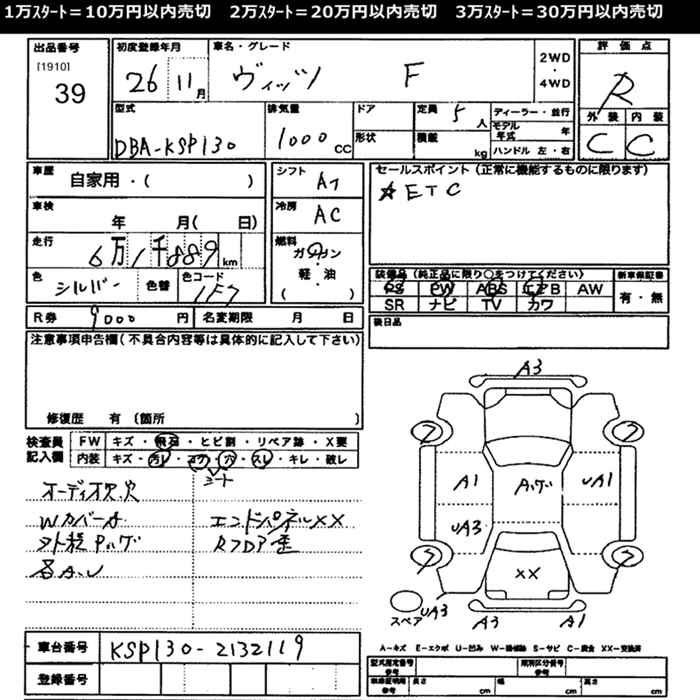 1万スタート=10万円以内売切 2万スタート=20万円以内売切 3万スタート=30万円以内売切
出品番号 初度登録年月 車名・グレード 2WD ・ 4WD 評価点
[1910]
39 26 11月 ヴィッツ F R
型式 排気量 ドア 定員 5人 ディーラー・並行 外装 内装
DBA-KSP130 1000cc 形状 積載 kg モデル年式 年 C C
ハンドル 左・右
車歴 自家用・( ) シフト AT セールスポイント(正常に機能するものに限ります)
☆ETC
車検 年 月( 日) 冷房 AC
走行 6万1千889km 燃料 ガソリン・軽・油 ( )
色 シルバー 色替 色コード 1F7
装備品(純正品に限り○をつけてください) 新車保証書
PS PW ABS エアB AW 有・無
SR ナビ TV カワ
R券 9000円 名変期限 月 日 後日品
注意事項申告欄(不具合内容等は具体的に記入して下さい)
修復歴 有(箇所 )
検査員記入欄 FW キズ・飛石・ヒビ割・リペア跡・X要
内装 キズ・汚レ・コゲ・穴・スレ・キレ・破レ
シート
オーディオ欠.穴
Wカバー
エンドパネルXX
各A.U
A3
A1 UA1
UA3
XX
スペア UA3 A3 A1
A-キズ E-エクボ U-凹み S-サビ C-腐食 XX-交換済
車台番号 KSP130-2132119
登録番号
型式指定番号 参考 類別区分番号 参考
車車証明用 参考 長さ cm 幅 cm 高さ cm